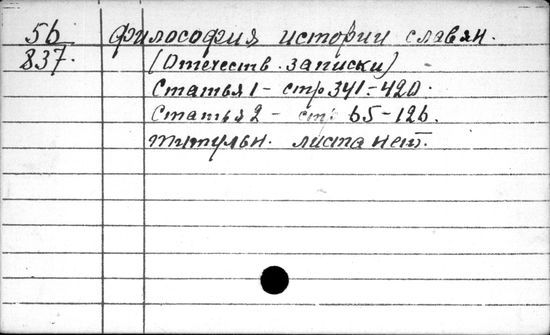 56 Философия истории славян.
837. (Отечеств. записки)
Статья 1 - стр 341-420.
Статья 2 - стр 65-126.
титульн. листа нет.